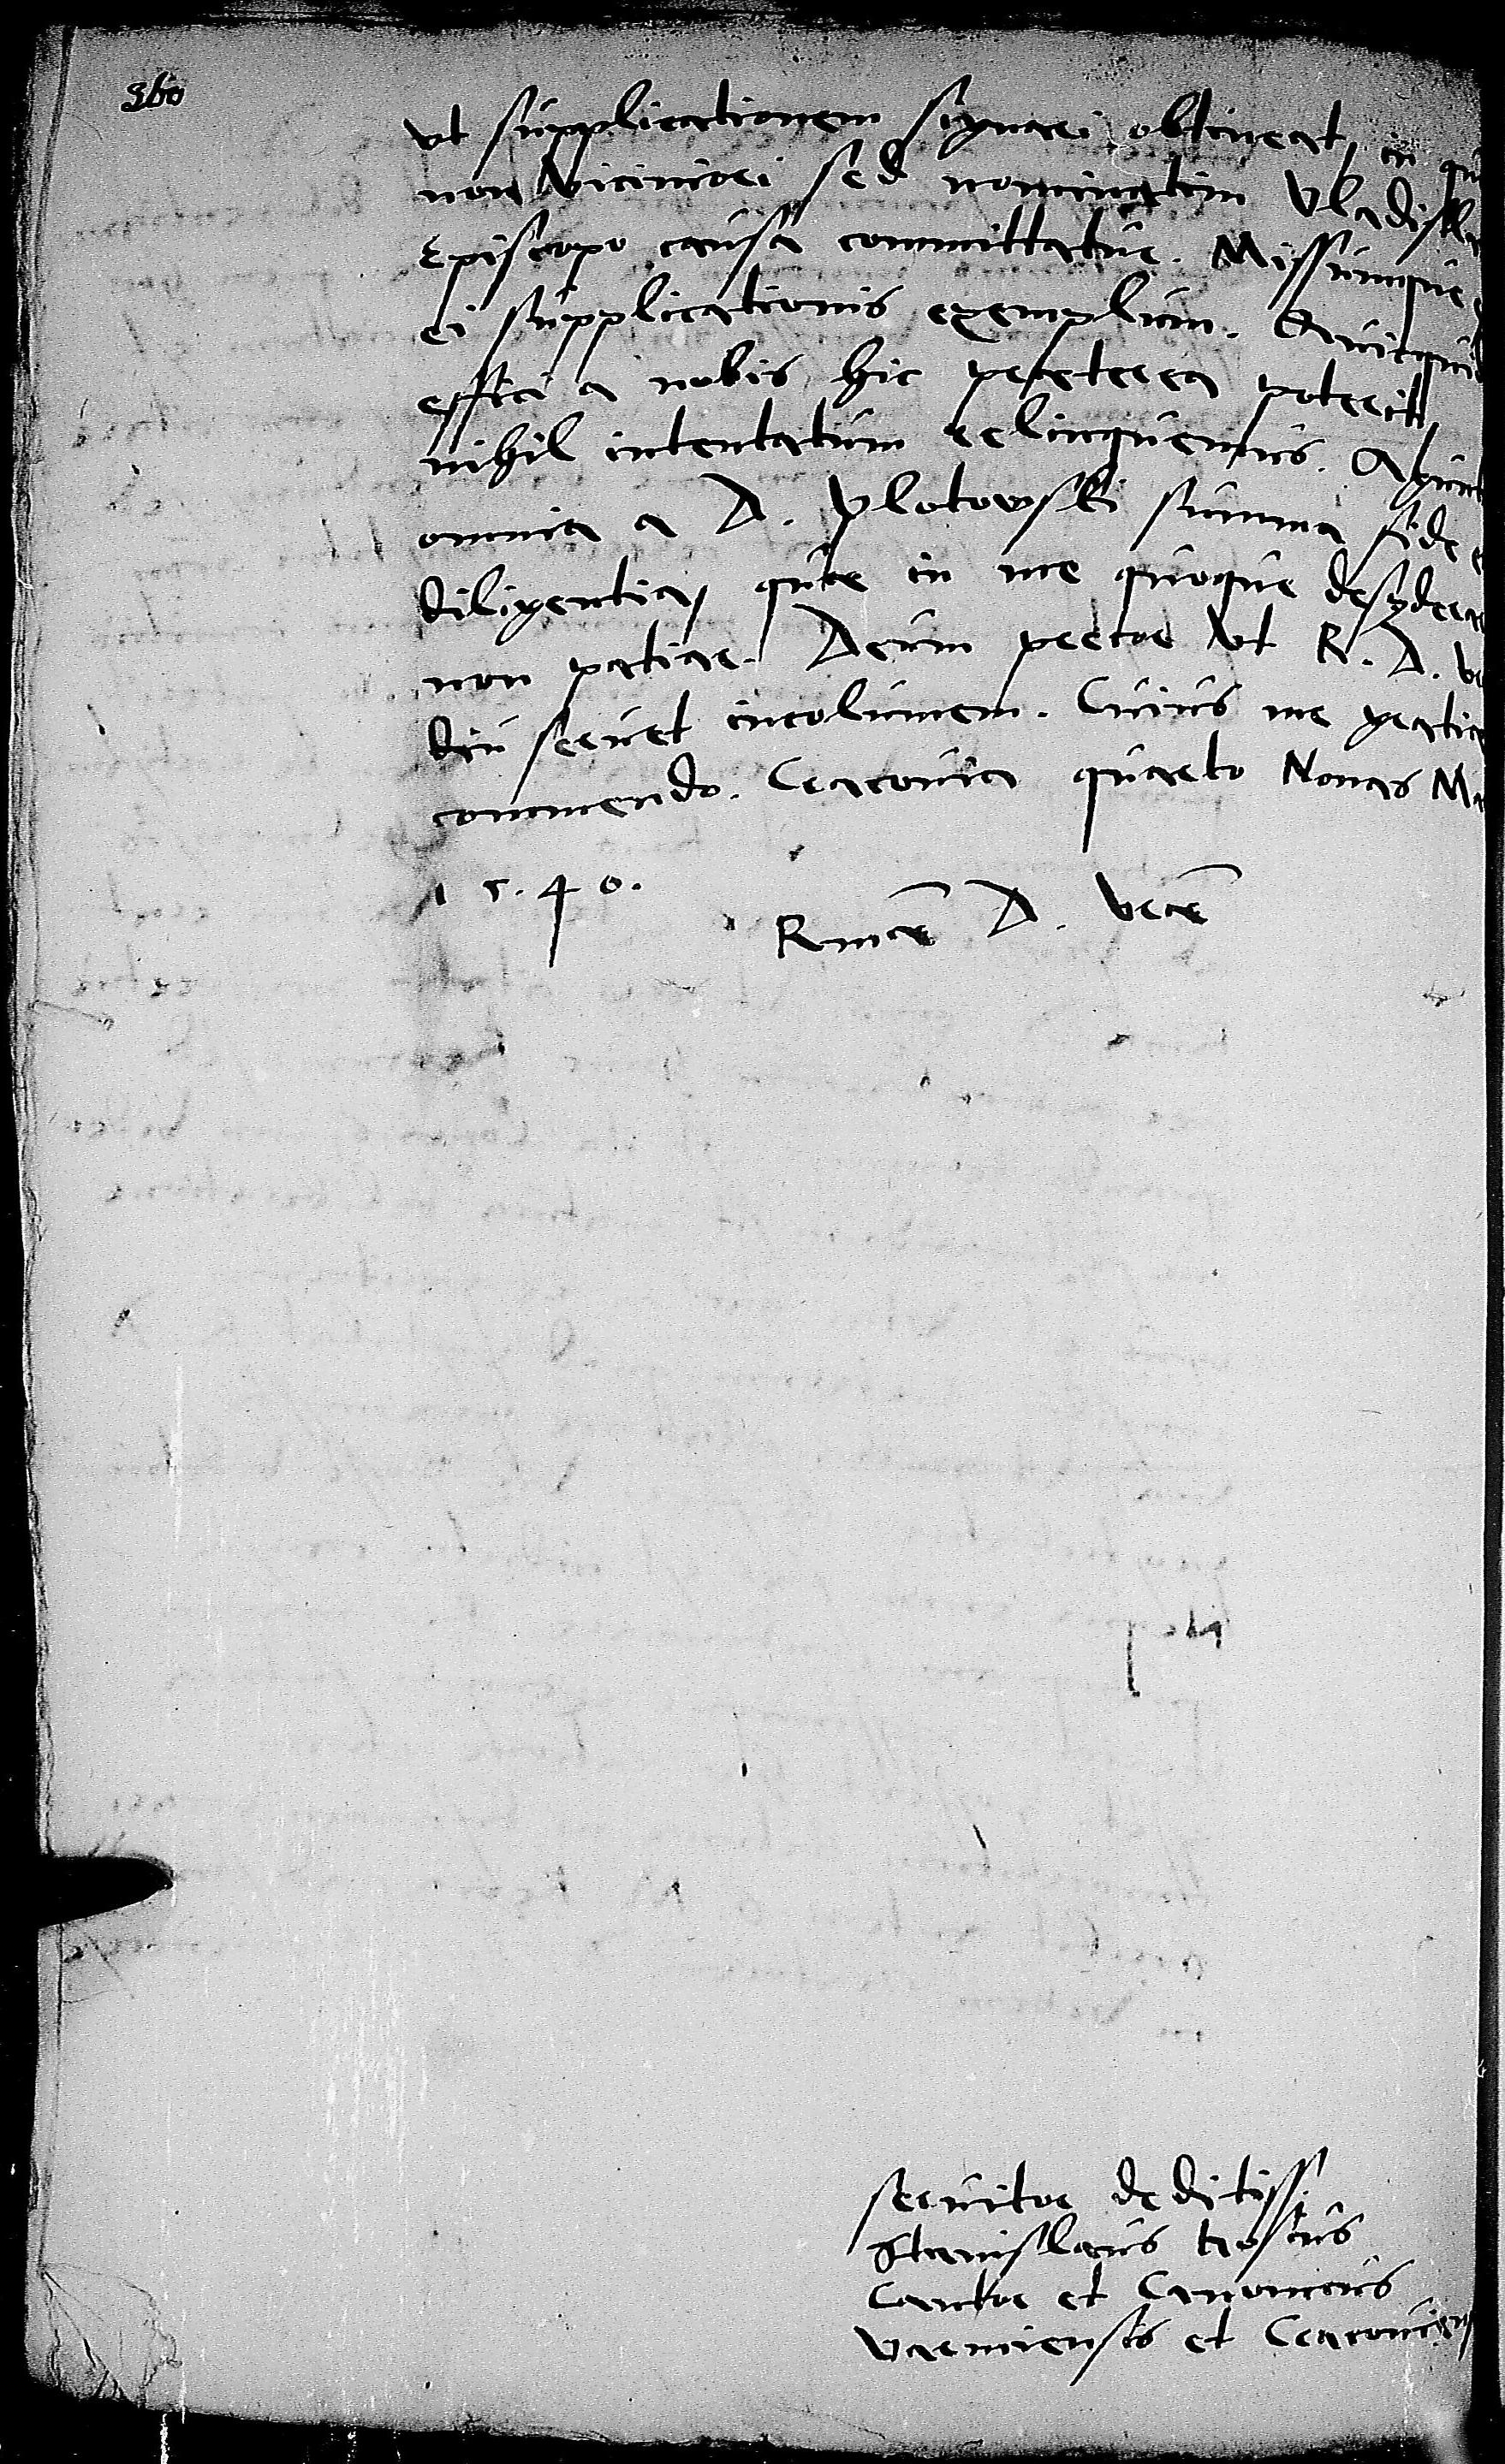 360
vt supplicationem signari obtineat, in qu
non Viciniori sed nominatim Vladisla
Episcopo causa committatur. Missumque
ei supplicationis exemplum. Quicquid
effici a nobis hic praeterea poterit,
nihil intentatum relinquemus. Agunt
omnia a D. Plotowski summa fide e
diligentia, quae in me quoque desydera
non patiar. Deum precor Vt R. D. V
diu seruet incolumem. Cuius me gratia
commendo. Cracouia quarto Nonas Ma
1540.
Rmae D. Vrae
seruitor deditiss
Stanislaus Hosius
Cantor et Canonicus
Varmiensis et Cracouien